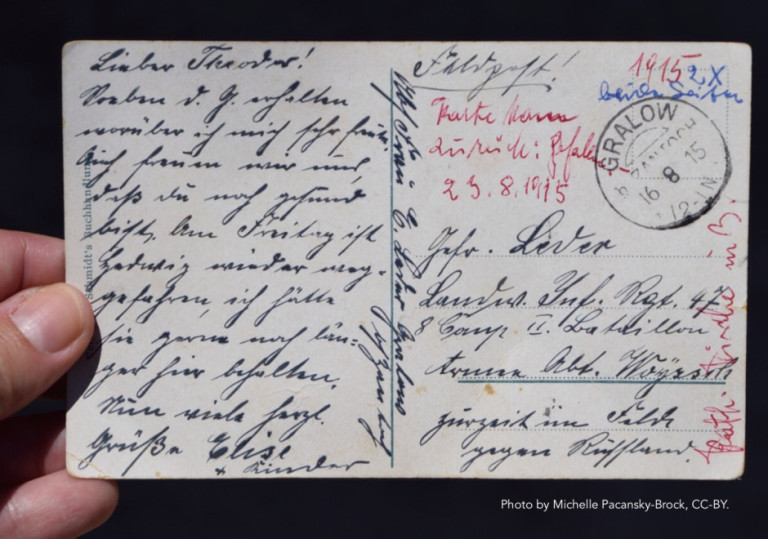 Lieber Theodor!
Soeben d. G. erhalten
worüber ich mich sehr freue.
Auch freuen wir uns,
daß du noch gesund
bist. Am Freitag ist
Hedwig wieder weg-
gefahren, ich hätte
sie gerne noch län-
ger hier behalten.
Nun viele herzl.
Grüße Elise
+ Kinder
Schmidt's Buchhandlung
Frau E. Leder Gralow
Feldpost!
1915 2X
beiden Seiten
Karte kam
zurück:
23.8.1915
GRALOW
ZANTOCH
16 8 15
12-1N
Gefr. Leder
Landw. Inf. Rgt. 47
8 Comp II. Bataillon
Armee Abt. Woyrsch
zurzeit im Felde
gegen Russland.
Kirche in B.
Photo by Michelle Pacansky-Brock, CC-BY.